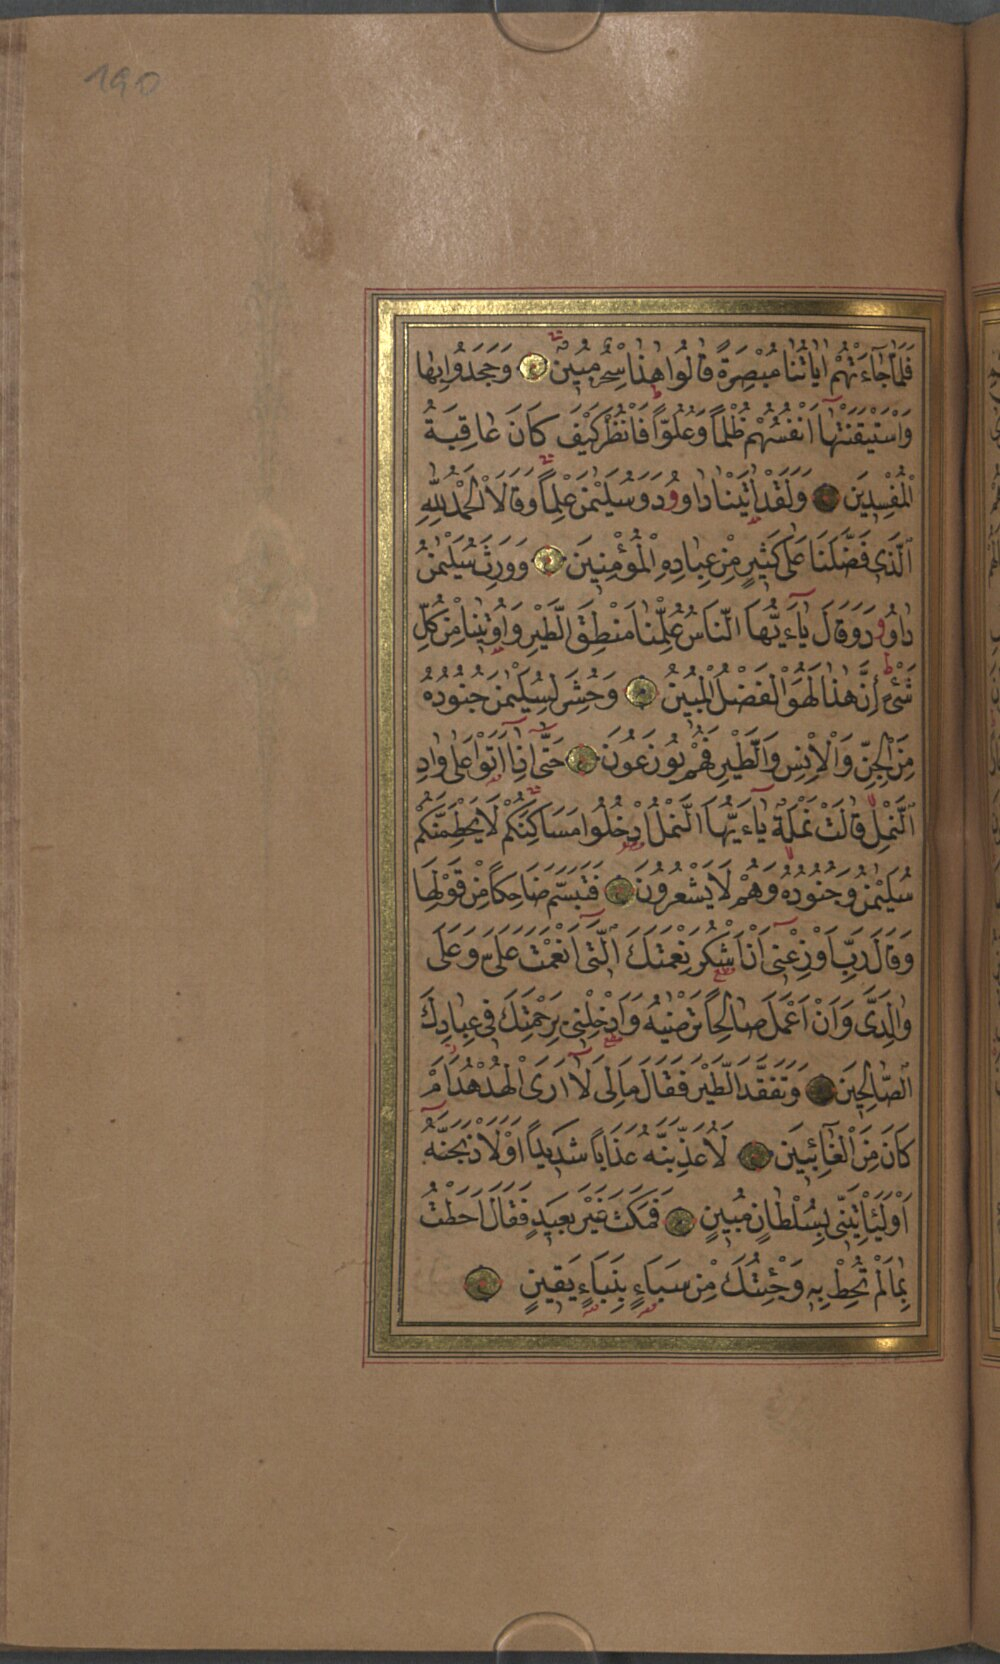 190
فَلَمَّا جَاءَتْهُمْ اٰيَاتُنَا مُبْصِرَةً قَالُوا هٰذَا سِحْرٌ مُبِينٌ وَجَحَدُوا بِهَا
وَاسْتَيْقَنَتْهَا اَنْفُسُهُمْ ظُلْماً وَعُلُوّاً فَانْظُرْ كَيْفَ كَانَ عَاقِبَةُ
الْمُفْسِدِينَ وَلَقَدْ اٰتَيْنَا دَاوُودَ وَسُلَيْمٰنَ عِلْماً وَقَالَا الْحَمْدُ لِلّٰهِ
الَّذِى فَضَّلَنَا عَلٰى كَثِيرٍ مِنْ عِبَادِهِ الْمُؤْمِنِينَ وَوَرِثَ سُلَيْمٰنُ
دَاوُودَ وَقَالَ يَاءَيُّهَا النَّاسُ عُلِّمْنَا مَنْطِقَ الطَّيْرِ وَاُوتِينَا مِنْ كُلِّ
شَىْءٍ اِنَّ هٰذَا لَهُوَ الْفَضْلُ الْمُبِينُ وَحُشِرَ لِسُلَيْمٰنَ جُنُودُهُ
مِنَ الْجِنِّ وَالْاِنْسِ وَالطَّيْرِ فَهُمْ يُوزَعُونَ حَتّٰى اِذَا اَتَوْا عَلٰى وَادِ
النَّمْلِ قَالَتْ نَمْلَةٌ يَاءَيُّهَا النَّمْلُ ادْخُلُوا مَسَاكِنَكُمْ لَا يَحْطِمَنَّكُمْ
سُلَيْمٰنُ وَجُنُودُهُ وَهُمْ لَا يَشْعُرُونَ فَتَبَسَّمَ ضَاحِكاً مِنْ قَوْلِهَا
وَقَالَ رَبِّ اَوْزِعْنِى اَنْ اَشْكُرَ نِعْمَتَكَ الَّتِى اَنْعَمْتَ عَلَىَّ وَعَلٰى
وَالِدَىَّ وَاَنْ اَعْمَلَ صَالِحاً تَرْضٰيهُ وَاَدْخِلْنِى بِرَحْمَتِكَ فِى عِبَادِكَ
الصَّالِحِينَ وَتَفَقَّدَ الطَّيْرَ فَقَالَ مَا لِىَ لَا اَرَى الْهُدْهُدَ اَمْ
كَانَ مِنَ الْغَائِبِينَ لَاُعَذِّبَنَّهُ عَذَاباً شَدِيداً اَوْ لَاَذْبَحَنَّهُ
اَوْ لَيَاْتِيَنِّى بِسُلْطَانٍ مُبِينٍ فَمَكَثَ غَيْرَ بَعِيدٍ فَقَالَ اَحَطْتُ
بِمَا لَمْ تُحِطْ بِهِ وَجِئْتُكَ مِنْ سَبَاءٍ بِنَبَاءٍ يَقِينٍ